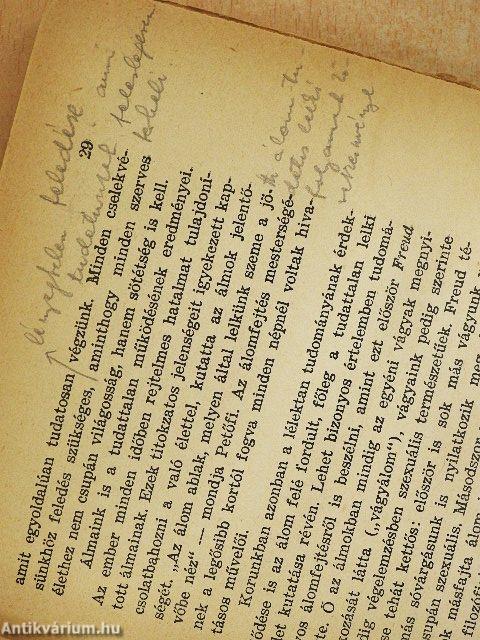 lényegtelen feledése,
tudatunkat ami
feleslegesen
terheli.
álom tu-
lelki
folyamat
eredménye
29
amit egyoldalúan tudatosan végzünk. Minden cselekvé-
sünkhöz feledés szükséges, aminthogy minden szerves
élethez nem csupán világosság, hanem sötétség is kell.
Álmaink is a tudattalan működésének eredményei.
Az ember minden időben rejtelmes hatalmat tulajdoní-
tott álmainak. Ezek titokzatos jelenségeit igyekezett kap-
csolatbahozni a való élettel, kutatta az álmok jelentő-
ségét. „Az álom ablak, melyen által lelkünk szeme a jö-
vőbe néz" — mondja Petőfi. Az álomfejtés mesterségé-
nek a legősibb kortól fogva minden népnél voltak hiva-
tásos művelői.
Korunkban azonban a lélektan tudományának érdek-
lődése is az álom felé fordult, főleg a tudattalan lelki
élet kutatása révén. Lehet bizonyos értelemben tudomá-
nyos álomfejtésről is beszélni, amint ezt először Freud
Ő az álmokban mindig az egyéni vágyak megnyi-
latkozását látta („vágyálom"), vágyaink pedig szerinte
végelemzésben szexuális természetűek. Freud té-
tehát kettős: először is sok más vágyunk
sóvárgásunk is nyilatkozik meg
csupán szexuális. Másodszor
másfajta álom
filozófi